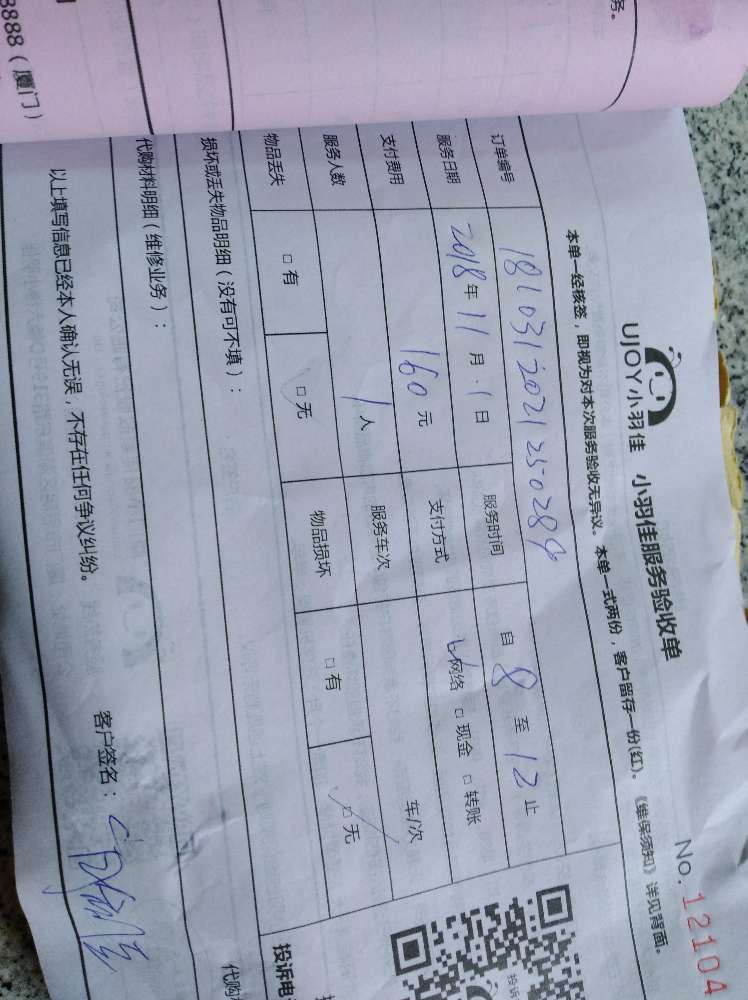 务。
8888（厦门）
No. 12104
UJOY小羽佳 小羽佳服务验收单
本单一经核签，即视为对本次服务验收无异议。本单一式两份，客户留存一份(红)。《维保须知》详见背面。
订单编号 181031202125028
服务日期 2018年11月1日 服务时间 自8至12止
支付费用 160元 支付方式 网络 □现金 □转账
服务人数 1人 服务车次 车/次
物品丢失 □有 □无 物品损坏 □有 □无
损坏或丢失物品明细（没有可不填）：
代购材料明细（维修业务）：
以上填写信息已经本人确认无误，不存在任何争议纠纷。
客户签名：
投诉电
代购